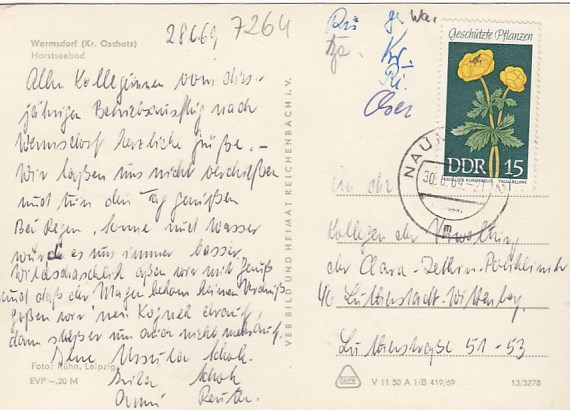 Wermsdorf (Kr. Oschatz)
Horstseebad
28669 7264
Allen Kolleginnen vom dies-
jährigen Betriebsausflug nach
Wermsdorf herzliche Grüße. –
Wir laßen uns nicht verdrießen
und tun den Tag genießen
Bei Regen, Sonne und Wasser
wurde es uns immer besser
Wildschweinfleisch aßen wir mit Genuß
und daß der Magen bekam keinen Verdruß
goßen wir 'nen Kognak drauf,
dann stießen wir
Ursula
Foto: Kühn, Leipzig
EVP –,20 M
VEB BILD UND HEIMAT REICHENBACH I. V.
Geschützte Pflanzen
DDR 15
TROLLIUS EUROPAEUS TROLLBLUME
NAU
30.6.69-21
An die
Kollegen der Verwaltung
der Clara-Zetkin-Poliklinik
46 Lutherstadt-Wittenberg
Lutherstraße 51-53
V 11 50 A 1/B 419/69
13/3278